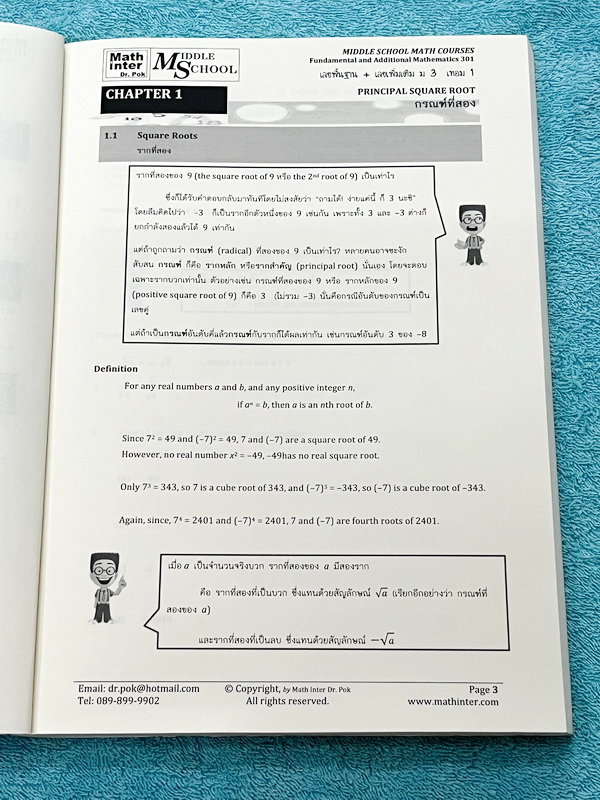 Math Inter Dr. Pok
MIDDLE SCHOOL
MIDDLE SCHOOL MATH COURSES
Fundamental and Additional Mathematics 301
เลขพื้นฐาน + เลขเพิ่มเติม ม 3 เทอม 1
CHAPTER 1
PRINCIPAL SQUARE ROOT
กรณฑ์ที่สอง
1.1 Square Roots
รากที่สอง
รากที่สองของ 9 (the square root of 9 หรือ the 2ⁿᵈ root of 9) เป็นเท่าไร
ซึ่งก็ได้รับคำตอบกลับมาทันทีโดยไม่สงสัยว่า "ถามได้! ง่ายแค่นี้ ก็ 3 นะซิ"
โดยลืมคิดไปว่า –3 ก็เป็นรากอีกตัวหนึ่งของ 9 เช่นกัน เพราะทั้ง 3 และ –3 ต่างก็
ยกกำลังสองแล้วได้ 9 เท่ากัน
แต่ถ้าถูกถามว่า กรณฑ์ (radical) ที่สองของ 9 เป็นเท่าไร? หลายคนอาจชะงัก
สับสน กรณฑ์ ก็คือ รากหลัก หรือรากสำคัญ (principal root) นั่นเอง โดยจะตอบ
เฉพาะรากบวกเท่านั้น ตัวอย่างเช่น กรณฑ์ที่สองของ 9 หรือ รากหลักของ 9
(positive square root of 9) ก็คือ 3 (ไม่รวม –3) นั่นคือกรณีอันดับของกรณฑ์เป็น
เลขคู่
แต่ถ้าเป็นกรณฑ์อันดับคี่แล้วกรณฑ์กับรากก็ได้ผลเท่ากัน เช่นกรณฑ์อันดับ 3 ของ –8
Definition
For any real numbers a and b, and any positive integer n,
if aⁿ = b, then a is an nth root of b.
Since 7² = 49 and (–7)² = 49, 7 and (–7) are a square root of 49.
However, no real number x² = –49, –49has no real square root.
Only 7³ = 343, so 7 is a cube root of 343, and (–7)³ = –343, so (–7) is a cube root of –343.
Again, since, 7⁴ = 2401 and (–7)⁴ = 2401, 7 and (–7) are fourth roots of 2401.
เมื่อ a เป็นจำนวนจริงบวก รากที่สองของ a มีสองราก
คือ รากที่สองที่เป็นบวก ซึ่งแทนด้วยสัญลักษณ์ √a (เรียกอีกอย่างว่า กรณฑ์ที่
สองของ a)
และรากที่สองที่เป็นลบ ซึ่งแทนด้วยสัญลักษณ์ –√a
Email: dr.pok@hotmail.com © Copyright, by Math Inter Dr. Pok Page 3
Tel: 089-899-9902 All rights reserved. www.mathinter.com